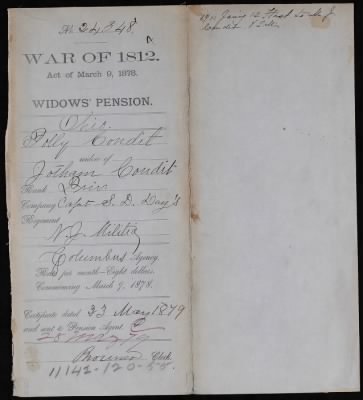 No. 24848.
WAR OF 1812.
Act of March 9, 1878.
WIDOWS' PENSION.
Ohio.
Polly Condit
widow of
Jotham Condit
Rank Priv
Company Capt. S. D. Day's
Regiment
N.J. Militia
Columbus Agency.
Rate per month—Eight dollars.
Commencing March 9, 1878.
Certificate dated 33 May 1879
and sent to Pension Agent
Clerk.
11142-120-55.
1812
Condit